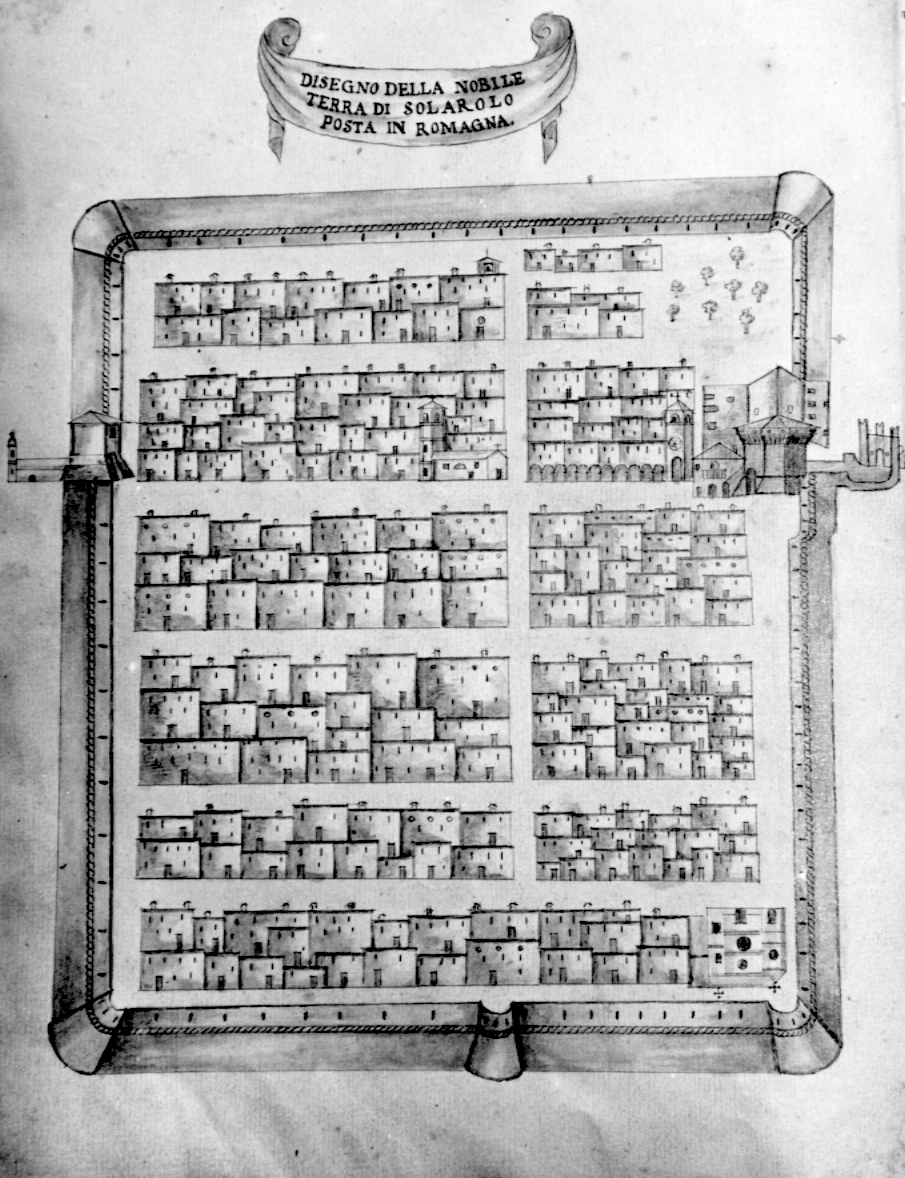 DISEGNO DELLA NOBILE
TERRA DI SOLAROLO
POSTA IN ROMAGNA.